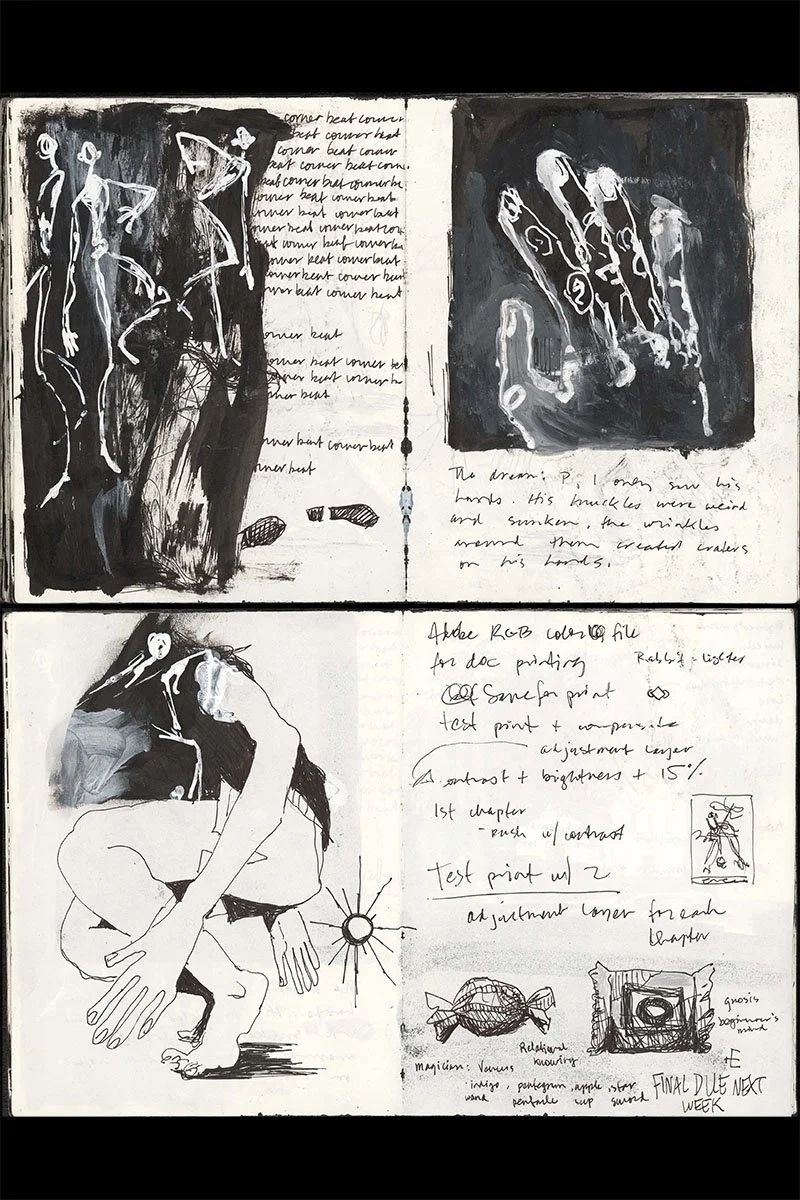 corner beat corner
beat corner beat
corner beat corner
beat corner beat corn
beat corner beat corner be
corner beat corner beat
corner beat corner beat
corner beat corner beat cor
corner beat corner be
corner beat corner beat
corner beat corner beat
corner beat corner beat
corner beat
corner beat corner be
corner beat corner be
corner beat
corner beat corner beat
corner beat
The dream: P, I only saw his
hands. His knuckles were weird
and sunken, the wrinkles
around them created craters
on his hands.
Adobe RGB color file
for doc printing
Rabbit - lighter
Same for print
test print + compensate
adjustment layer
contrast + brightness + 15%
1st chapter
- push w/ contrast
Test print w/ 2
adjustment layer for each
chapter
gnosis
beginner's
mind
Relational
knowing
magician: Various
indigo, pentagram, apple, star
wand pentacle cup sword
+E
FINAL DUE NEXT
WEEK